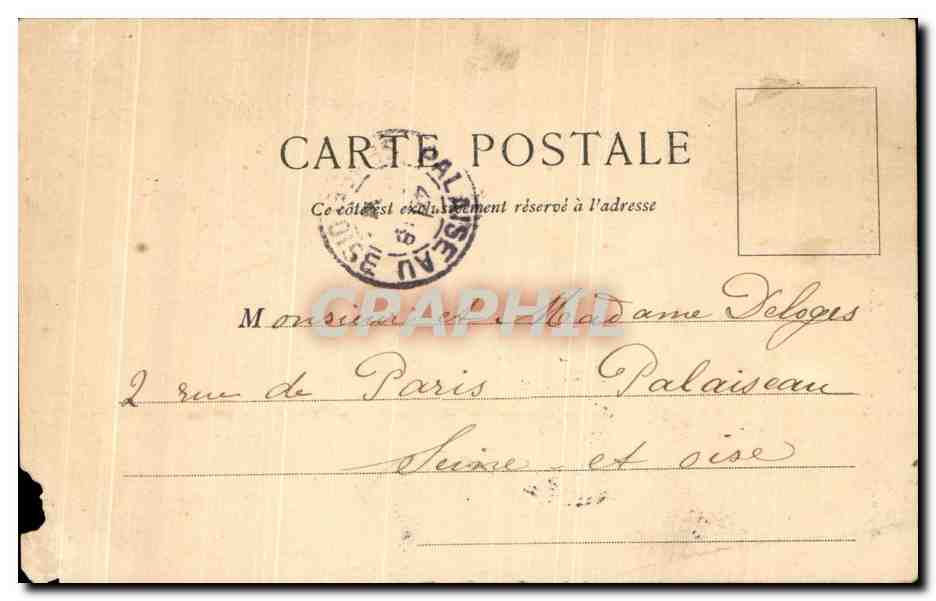 CARTE POSTALE
Ce côté est exclusivement réservé à l'adresse
PALAISEAU
SEINE OISE
Monsieur et Madame Deloges
2 rue de Paris Palaiseau
Seine et oise